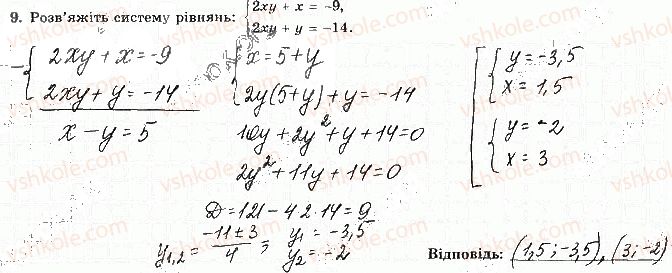 9. Розв'яжіть систему рівнянь: { 2xy + x = -9,
2xy + y = -14.
2xy + x = -9
2xy + y = -14
x - y = 5
x = 5 + y
2y(5+y) + y = -14
10y + 2y² + y + 14 = 0
2y² + 11y + 14 = 0
D = 121 - 4·2·14 = 9
y₁,₂ = (-11 ± 3)/4 = y₁ = -3,5
y₂ = -2
y = -3,5
x = 1,5
y = -2
x = 3
Відповідь: (1,5; -3,5), (3; -2)
vshkole.com